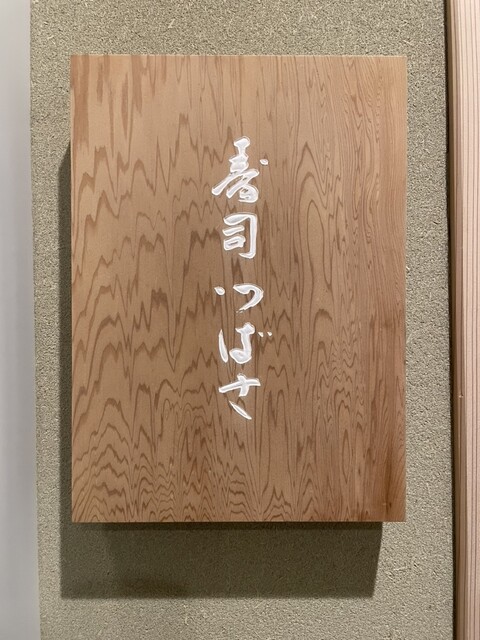 寿司つばさ